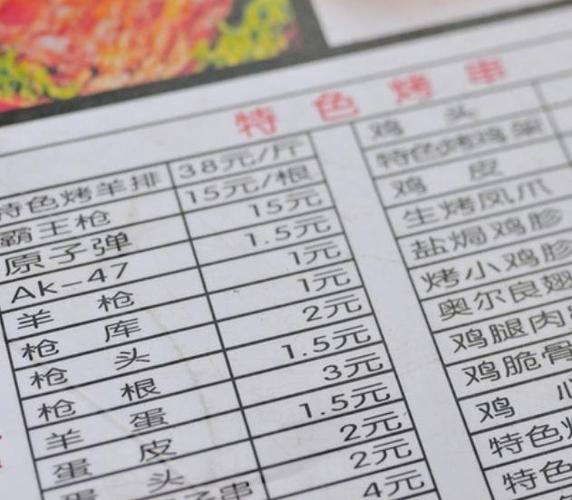 特色烤串
特色烤羊排 38元/斤
霸王枪 15元/根
原子弹 15元
AK-47 1.5元
羊枪 1元
枪库 1元
枪头 2元
枪根 1.5元
羊蛋 3元
蛋皮 1.5元
蛋头 2元
子串 2元
4元
鸡头
特色烤鸡架
鸡皮
生烤凤爪
盐焗鸡胗
烤小鸡胗
奥尔良翅
鸡腿肉
鸡脆骨
鸡心
特色烤
特色